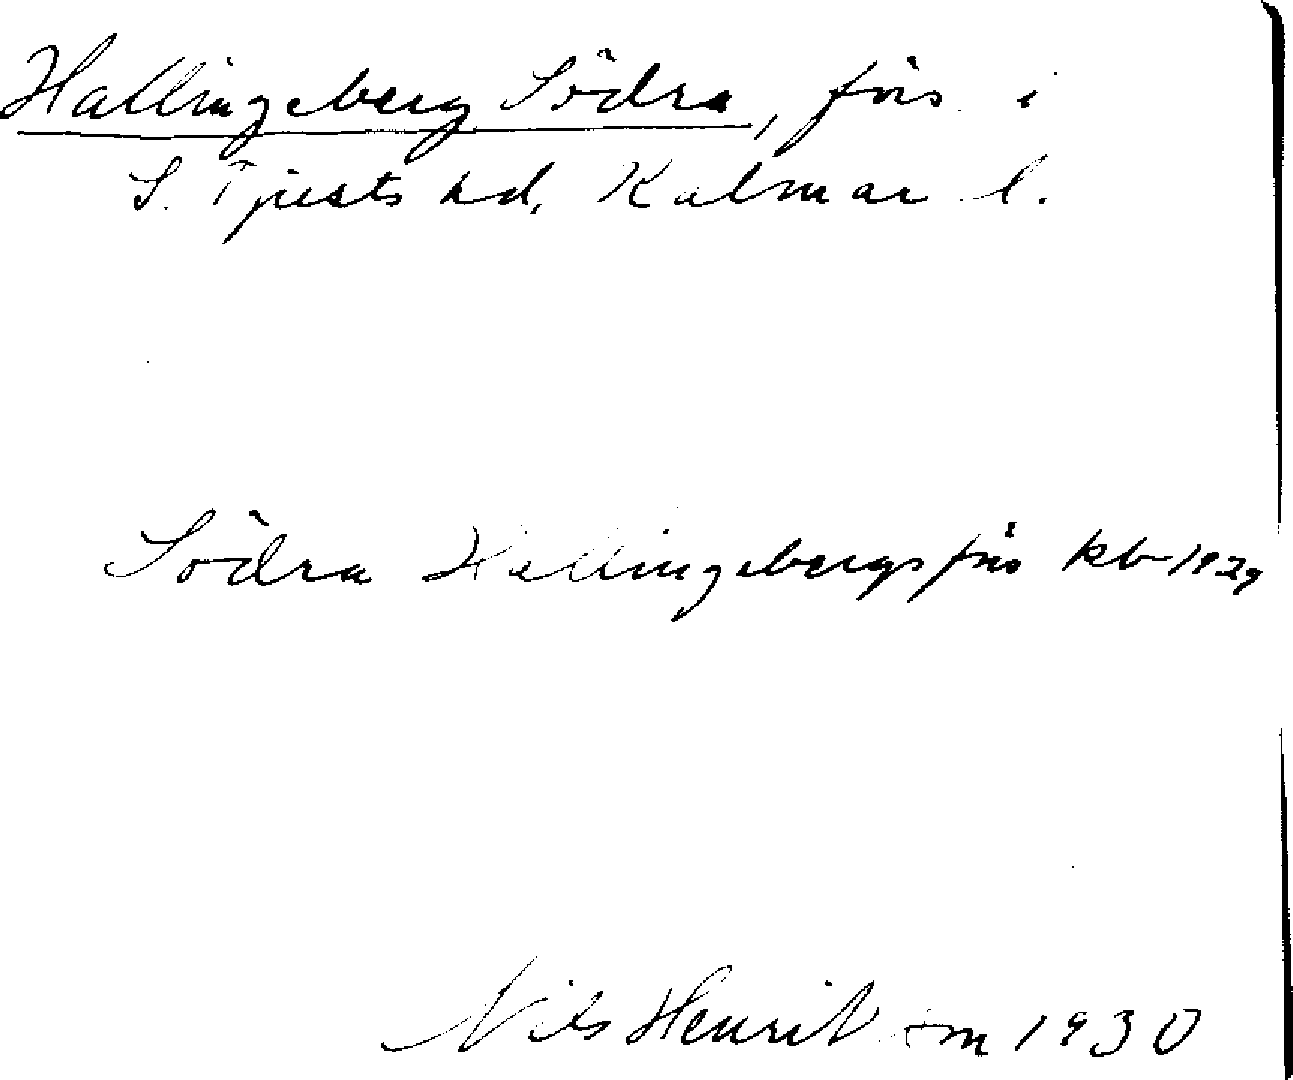 Hallingeberg Södra, förs. i
S. Tjusts hd, Kalmar l.
Södra Hallingebergs förs kb 1929
Nils Henriksson 1930